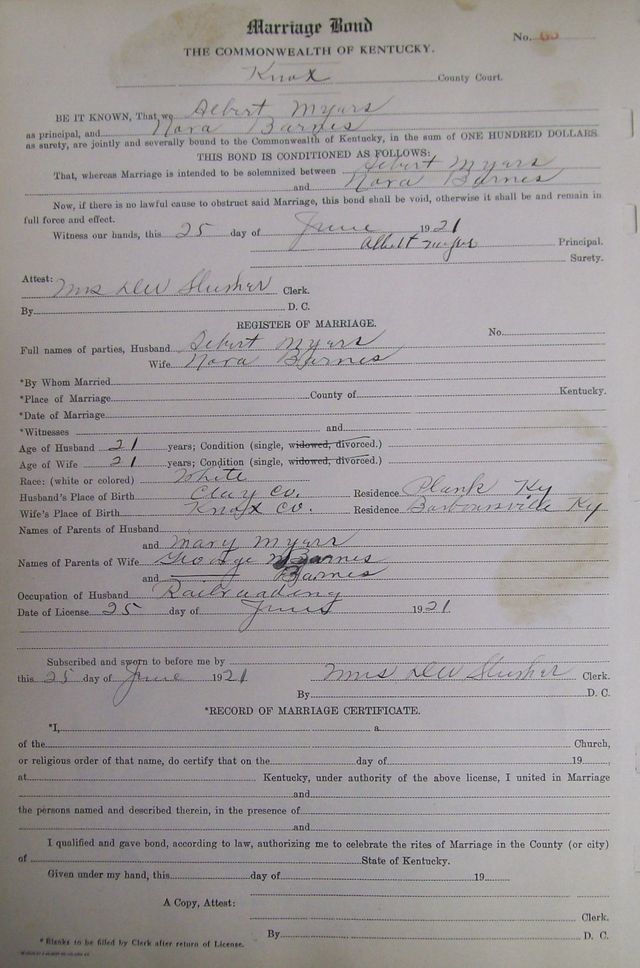 Marriage Bond
No. 65
THE COMMONWEALTH OF KENTUCKY.
Knox County Court.
BE IT KNOWN, That we Albert Myars
as principal, and Nora Barnes
as surety, are jointly and severally bound to the Commonwealth of Kentucky, in the sum of ONE HUNDRED DOLLARS
THIS BOND IS CONDITIONED AS FOLLOWS:
That, whereas Marriage is intended to be solemnized between Albert Myars
and Nora Barnes
Now, if there is no lawful cause to obstruct said Marriage, this bond shall be void, otherwise it shall be and remain in
full force and effect.
Witness our hands, this 25 day of June 1921
Albert Principal.
Surety.
Attest:
Mrs D W Slusher Clerk.
By D. C.
REGISTER OF MARRIAGE.
No.
Full names of parties, Husband Albert Myars
Wife Nora Barnes
*By Whom Married
*Place of Marriage County of Kentucky.
*Date of Marriage
*Witnesses and
Age of Husband 21 years; Condition (single, widowed, divorced.)
Age of Wife 21 years; Condition (single, widowed, divorced.)
Race: (white or colored) White
Husband's Place of Birth Clay Co. Residence Plank Ky
Wife's Place of Birth Knox Co. Residence Barbourville Ky
Names of Parents of Husband
and Mary Myars
Names of Parents of Wife George Barnes
and Barnes
Occupation of Husband Railroading
Date of License 25 day of June 1921
Subscribed and sworn to before me by
this 25 day of June 1921 Mrs D W Slusher Clerk.
By D. C.
*RECORD OF MARRIAGE CERTIFICATE.
*I, a
of the Church,
or religious order of that name, do certify that on the day of 19 ,
at Kentucky, under authority of the above license, I united in Marriage
and
the persons named and described therein, in the presence of
and
I qualified and gave bond, according to law, authorizing me to celebrate the rites of Marriage in the County (or city)
of State of Kentucky.
Given under my hand, this day of 19
A Copy, Attest:
Clerk.
By D. C.
*Blanks to be filled by Clerk after return of License.